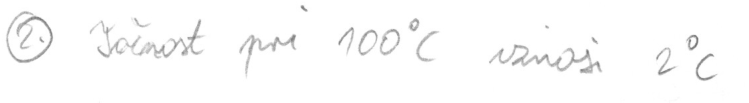 2. Točnost pri 100°C iznosi 2°C